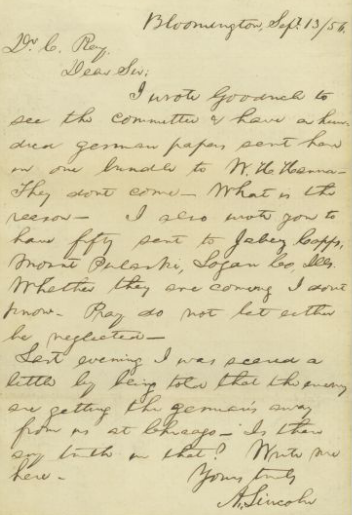 Bloomington, Sept. 13/56.
Dr. C. Ray.
Dear Sir:
I wrote Goodrich to
see the committee & have a hun-
dred german papers sent here
in one bundle to W. H. Hanna-
They dont come- What is the
reason- I also wrote you to
have fifty sent to Jabez Capps,
Mount Pulaski, Logan Co, Ills.
Whether they are coming I dont
know. Pray do not let either
be neglected-
Last evening I was scared a
little by being told that the enemy
are getting the germans away
from us at Chicago- Is there
any truth in that? Write me
here-
Yours truly
A. Lincoln